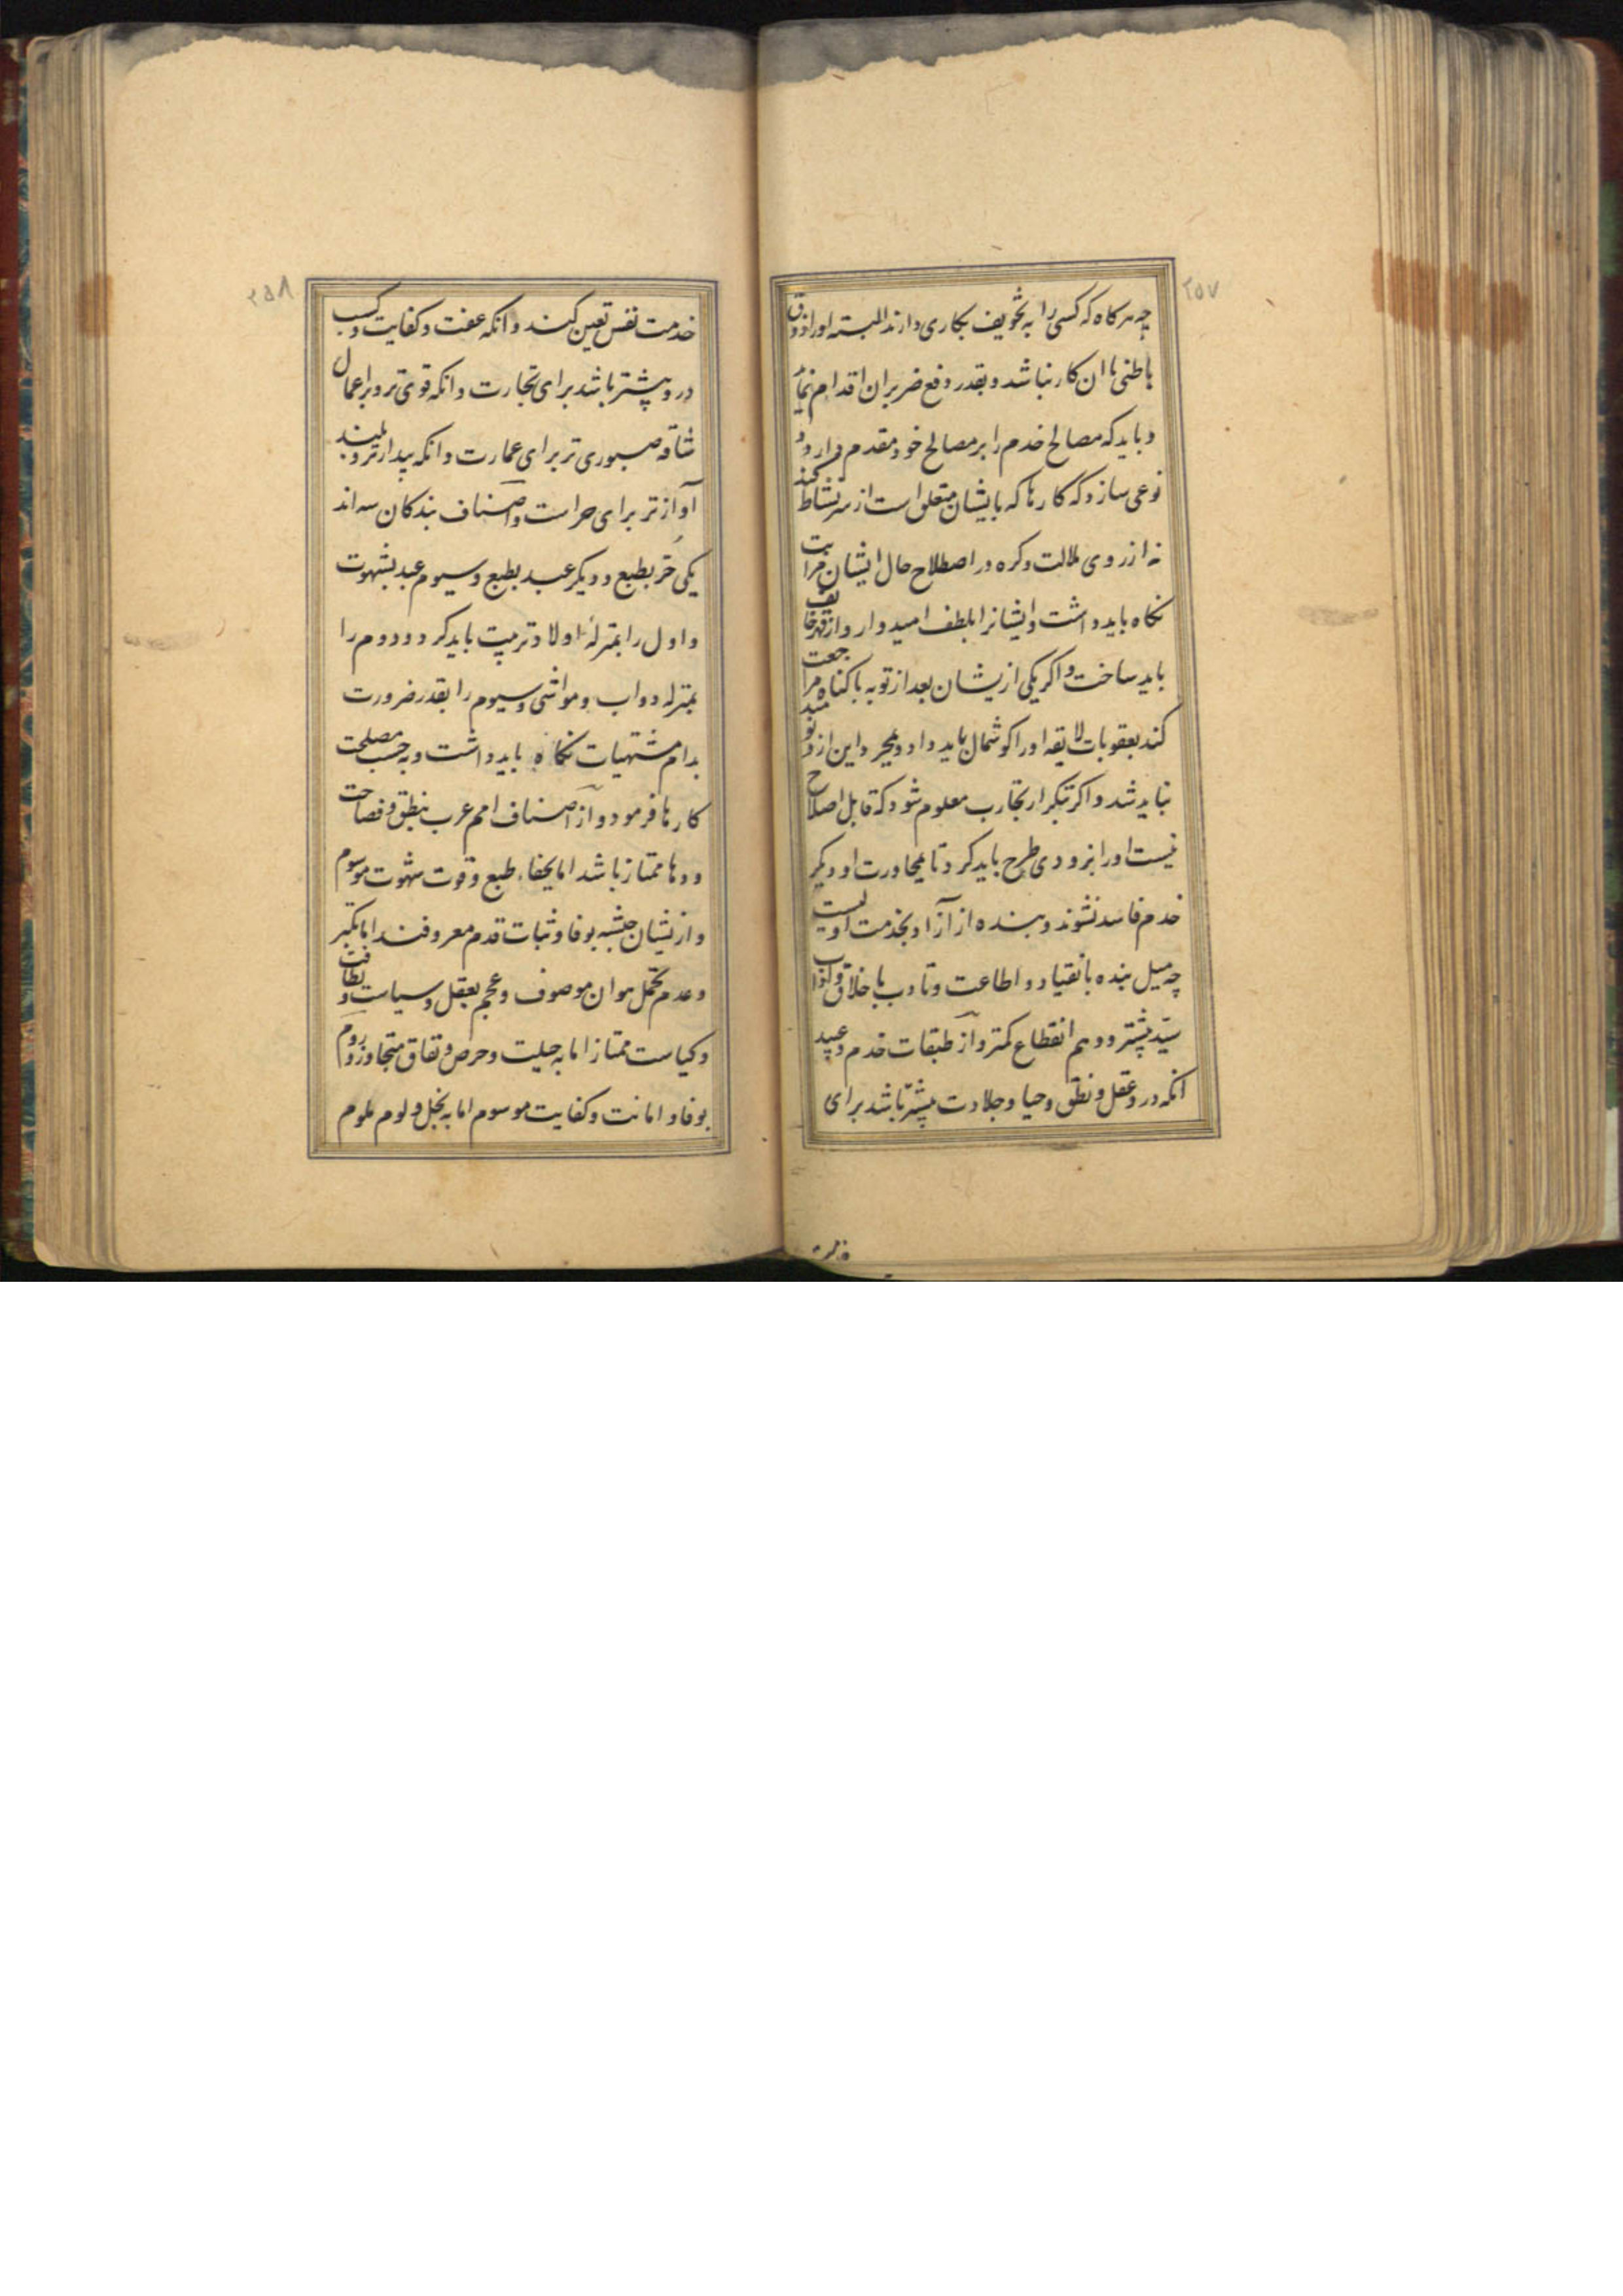 ۲۵۷
چه هر کاه که کسی را به تخویف بکاری دارند البته او را ذوق
باطنی با ان کار نباشد و بقدر دفع ضرر بران اقدام نماید
و باید که مصالح خدم را بر مصالح خود مقدم دارد و
نوعی سازد که کارها که بایشان متعلق است از سر نشاط کنند
نه از روی ملالت و کره و در اصطلاح حال ایشان مراتب
نکاه باید داشت و ایشانرا بلطف امیدوار و از قهر خائف
باید ساخت و اکر یکی از یشان بعد از توبه با کناه مراجعت
کند بعقوبات لایقه او را کوشمال باید داد و بمجرد این از و نومید
نباید شد و اکر بتکرار تجارب معلوم شود که قابل اصلاح
نیست او را بزودی طرح باید کرد تا بمجاورت او دیکر
خدم فاسد نشوند و بنده از آزاد بخدمت اولیست
چه میل بنده بانقیاد و اطاعت و تادب باخلاق و آداب
سید بیشتر و وهم انقطاع کمتر و از طبقات خدم و عبید
انکه در و عقل و نطق و حیا و جلادت بیشتر باشد برای
۲۵۸
خدمت نفس تعیین کنند و انکه عفت و کفایت و کسب
در و بیشتر باشد برای تجارت و انکه قوی تر و بر اعمال
شاقه صبوری تر برای عمارت و انکه بیدارتر و بلند
آوازتر برای حراست و اصناف بندکان سه اند
یکی حر بطبع و دیکر عبد بطبع و سیوم عبد بشهوت
و اول را بمنزلهٔ اولاد تربیت باید کرد و دوم را
بمنزله دواب و مواشی و سیوم را بقدر ضرورت
بدام مشتهیات نکاه باید داشت و بحسب مصلحت
کارها فرمود و از اصناف امم عرب بنطق و فصاحت
و دها ممتاز باشد اما بجفاء طبع و قوت شهوت موسوم
و از یشان حبشه بوفا و ثبات قدم معروفند اما بتکبر
و عدم تحمل هوان موصوف و عجم بعقل و سیاست و نظافت
و کیاست ممتاز اما به حیلت و حرص و نفاق متجاوز و روم
بوفا و امانت و کفایت موسوم اما به بخل و لوم ملوم